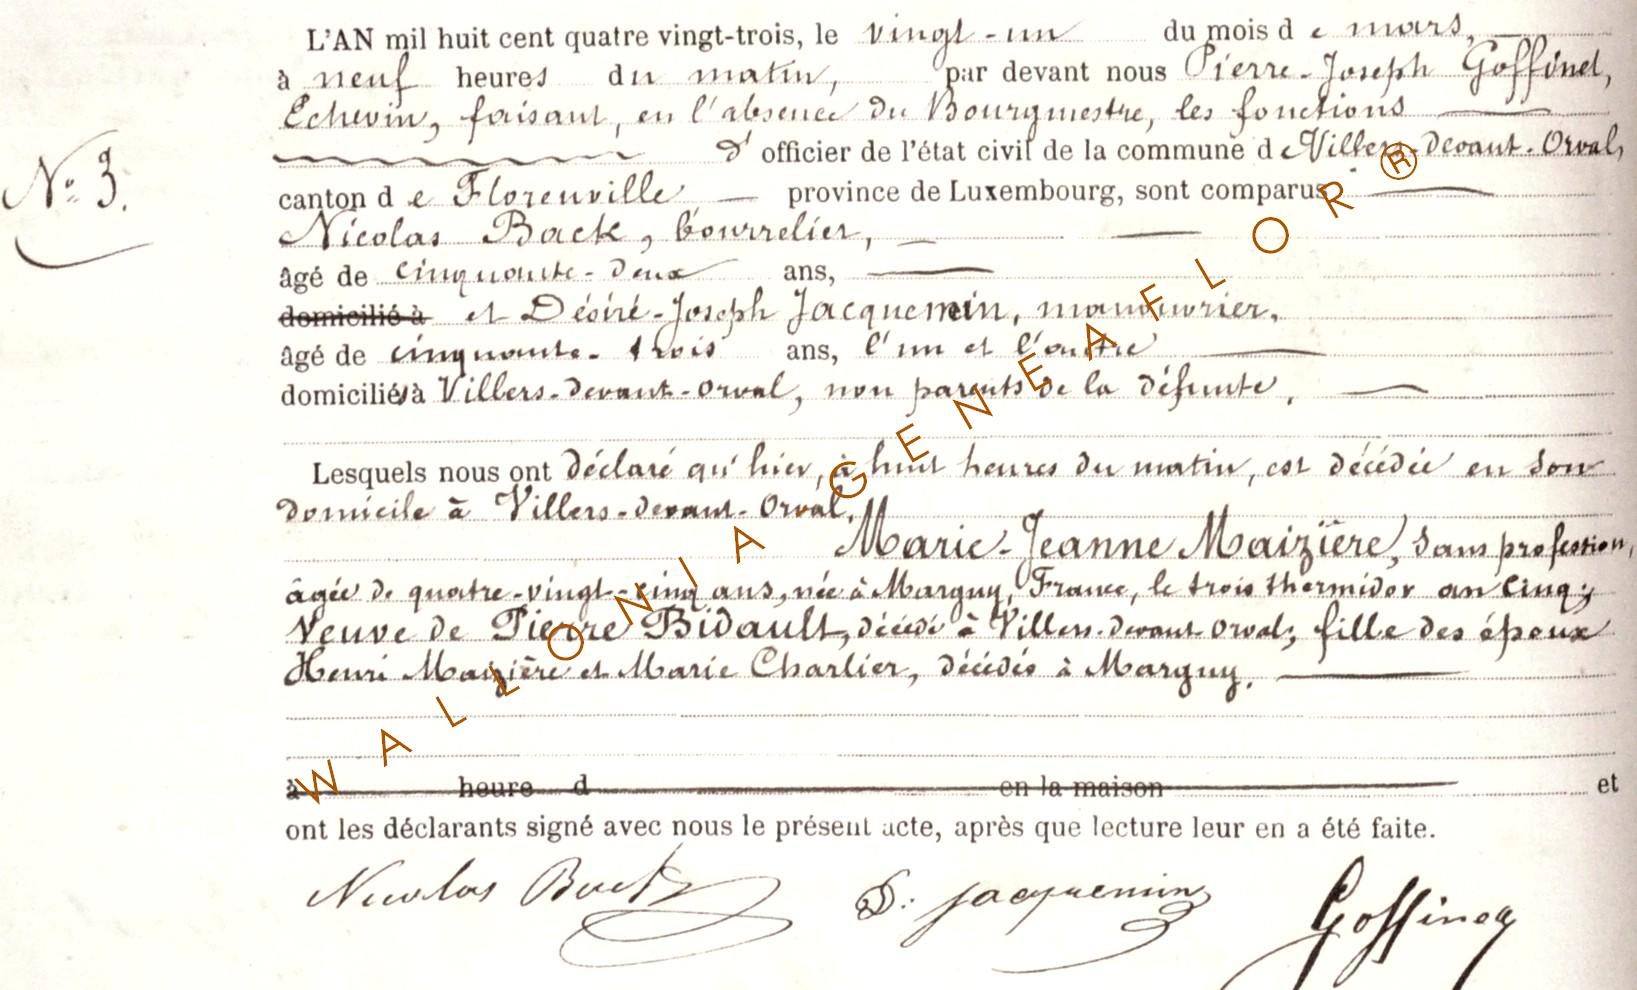 L'AN mil huit cent quatre vingt-trois, le vingt-un du mois d e mars,
à neuf heures du matin, par devant nous Pierre-Joseph Goffinet,
Echevin, faisant, en l'absence du Bourgmestre, les fonctions
d' officier de l'état civil de la commune d e Villers-devant-Orval,
N° 3.
canton d e Florenville province de Luxembourg, sont comparus
Nicolas Back, bourrelier,
âgé de cinquante-deux ans,
domicilié à et Désiré-Joseph Jacquemin, manouvrier,
âgé de cinquante-trois ans, l'un et l'autre
domiciliés à Villers-devant-Orval, non parents de la défunte.
Lesquels nous ont déclaré qu'hier, à huit heures du matin, est décédée en son
domicile à Villers-devant-Orval,
Marie-Jeanne Maizière, sans profession,
âgée de quatre-vingt-cinq ans, née à Margny, France, le trois thermidor an cinq;
Veuve de Pierre Bidault, décédé à Villers-devant-Orval; fille des époux
Henri Maizière et Marie Charlier, décédés à Margny.
à heure d en la maison et
ont les déclarants signé avec nous le présent acte, après que lecture leur en a été faite.
Nicolas Back D. Jacquemin Goffinet
WALLONIA GENEAFLOR®